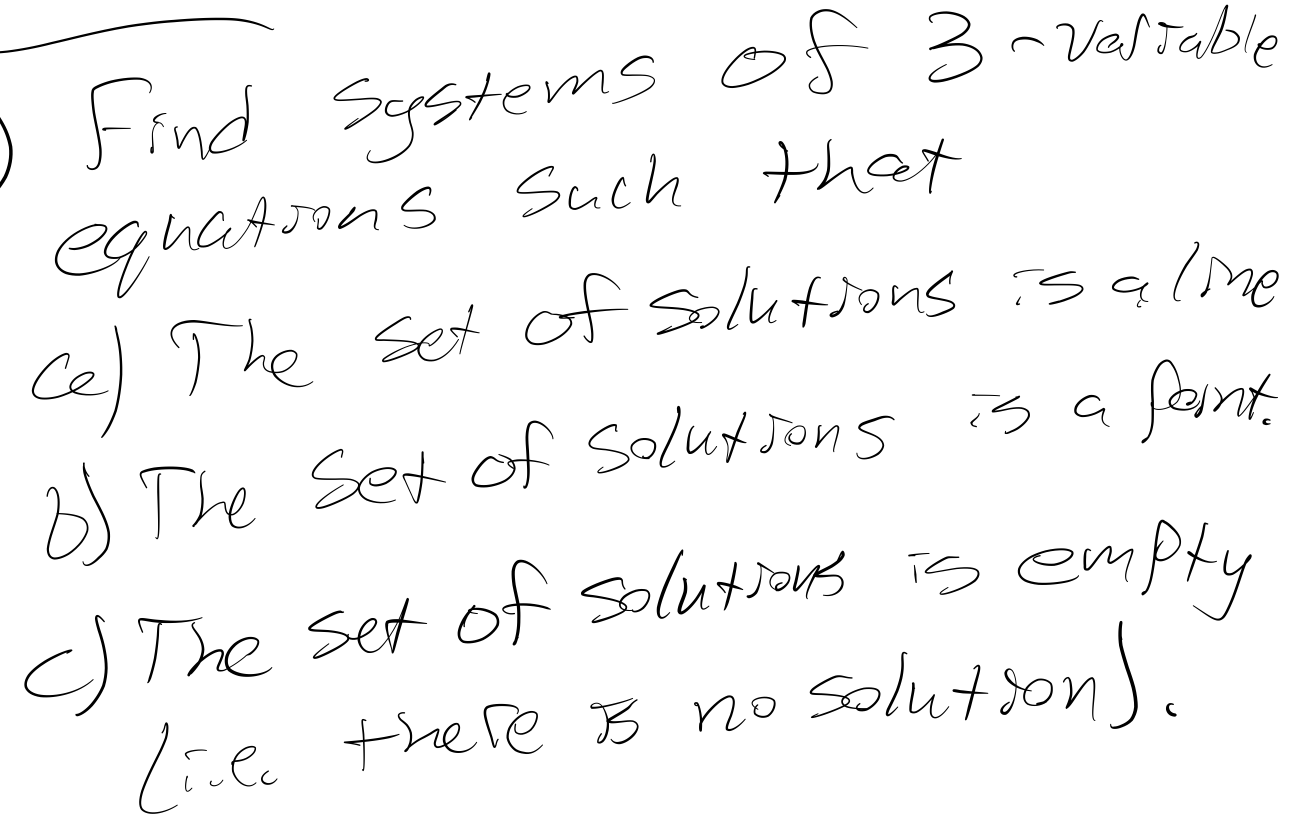 ) Find systems of 3-variable
equations such that
a) The set of solutions is a line
b) The set of solutions is a point.
c) The set of solutions is empty
(i.e. there is no solution).